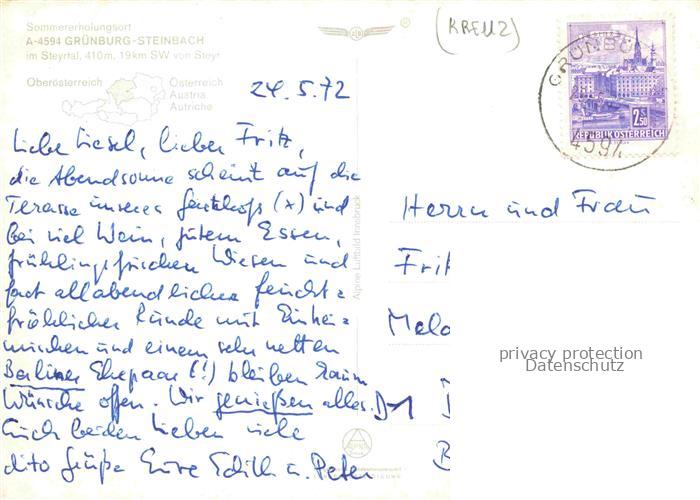 Sommererholungsort
A-4594 GRÜNBURG-STEINBACH
im Steyrtal, 410m, 19km SW von Steyr
Oberösterreich
Österreich
Austria
Autriche
(KREUZ)
GRÜNBU
4594
2.50
REPUBLIK ÖSTERREICH
24.5.72
Liebe Liesel, lieber Fritz,
die Abendsonne scheint auf die
Terasse unseres Gasthofs (x) und
bei viel Wein, gutem Essen,
frühlingsfrischen Wiesen und
fast allabendlicher feucht=
fröhlicher Runde mit Einhei=
mischen und einem sehr netten
Berliner Ehepaar (!) bleiben kaum
Wünsche offen. Wir genießen alles.
Euch beiden lieben viele
dito Grüße Eure Edith u. Peter
Alpine Luftbild Innsbruck
Herrn und Frau
Frit
Melc
D-1
B
privacy protection
Datenschutz